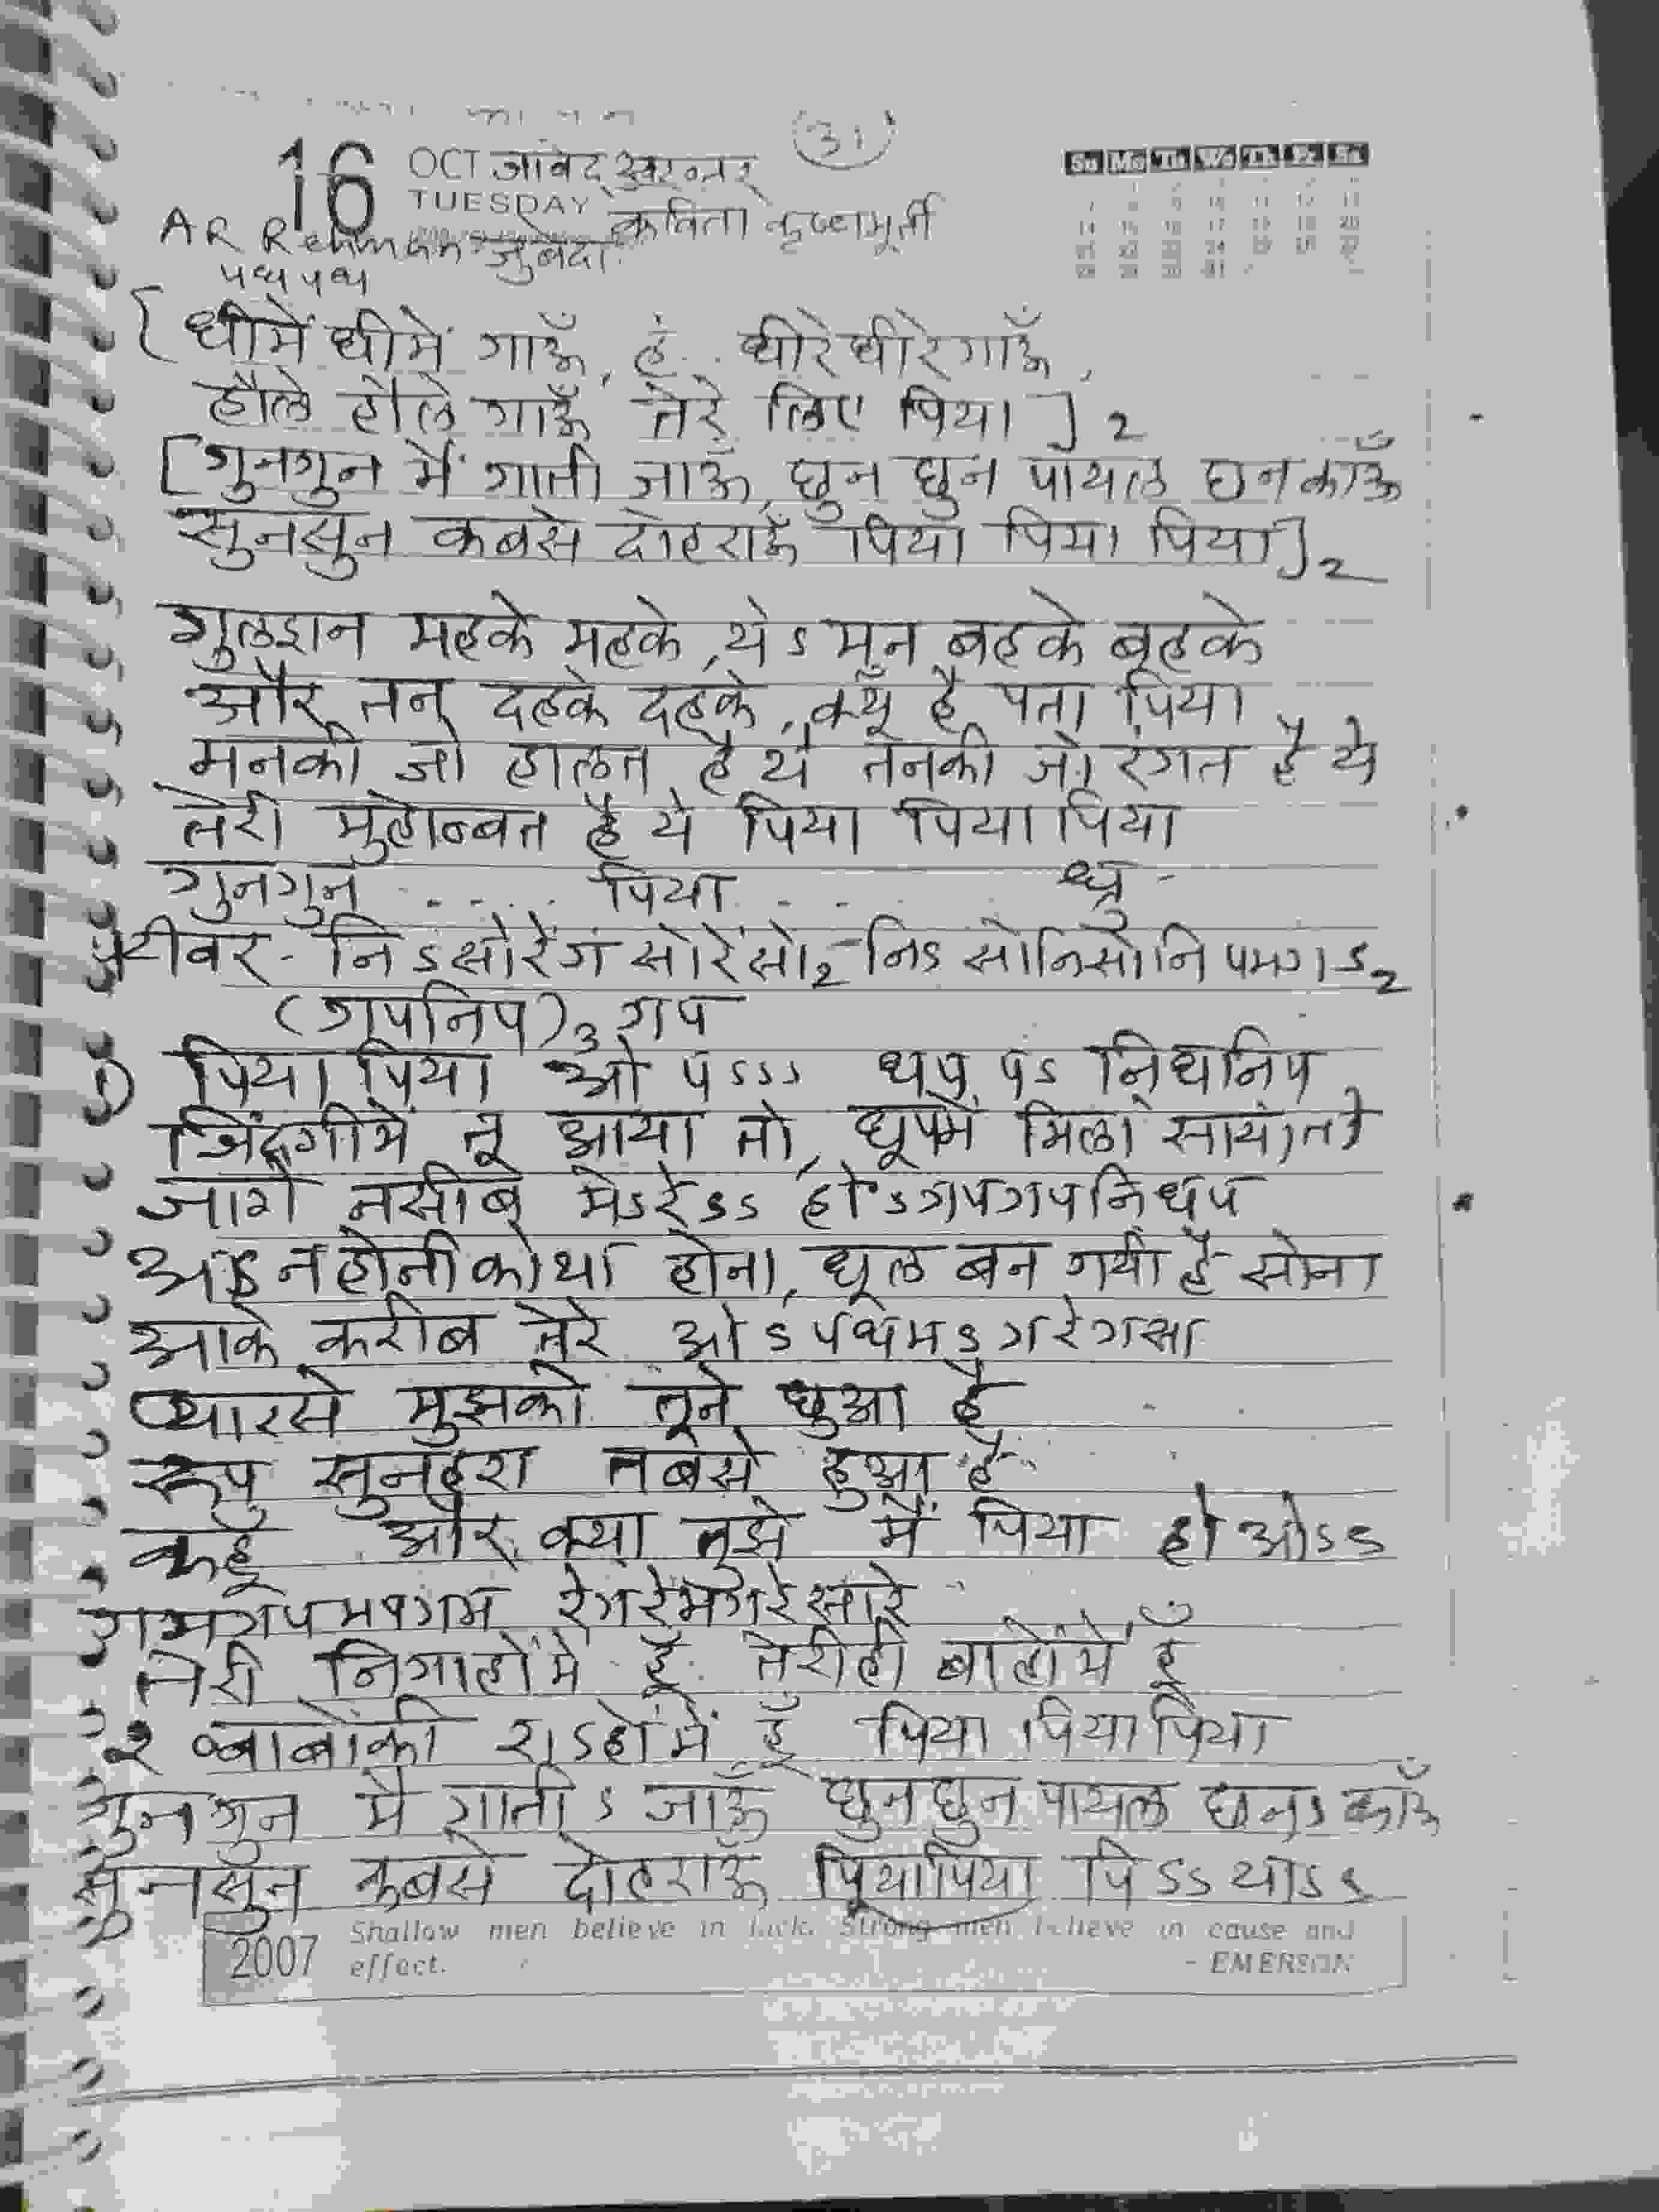 31
16 OCT जावेद अख्तर
TUESDAY कविता कृष्णमूर्ती
AR Rehman जुबेदा
पधपध
[धीमें धीमें गाऊँ, हं.. धीरेधीरेगाऊँ,
हौले हौले गाऊँ तेरे लिए पिया ] 2
[गुनगुन मैं गाती जाऊँ, छुन छुन पायल छनकाऊँ
सुनसुन कबसे दोहराऊँ पिया पिया पिया] 2
गुलशन महके महके, येऽ मन बहके बहके
और तन दहके दहके, क्यूँ है पता पिया
मनकी जो हालत है ये तनकी जो रंगत है ये
तेरी मुहोब्बत है ये पिया पिया पिया
गुनगुन .... पिया .. ध्रु-
सीटीवर - निऽसोरेंगं सोरेंसो2 - निऽ सोनिसोनि पमगऽ2
(गपनिप)3 गप
1) पिया पिया ओ पऽऽऽ धप पऽ निधनिप
जिंदगीमें तू आया तो, धूपमें मिला साया तो
जागे नसीब मेऽरेऽऽ होऽगपगपनिधप
अऽनहोनीको था होना, धूल बन गयी है सोना
आके करीब तेरे ओऽ पधमऽगरेगसा
प्यारसे मुझको तूने छुआ है
रूप सुनहरा तबसे हुआ है
कहूँ और क्या तुझे मैं पिया हो ओऽऽ
गमगपमपगम रेगरेमगरेसारे
तेरी निगाहोंमे हूँ तेरीही बाहोंमें हूँ
ख्वाबोंकी राऽहोंमें हूँ पिया पिया पिया
गुनगुन मै गातीऽ जाऊँ छुनछुन पायल छनऽकाऊँ
सुनसुन कबसे दोहराऊँ पियापिया पिऽऽयाऽऽ
2007 Shallow men believe in luck. Strong men believe in cause and
effect. - EMERSON